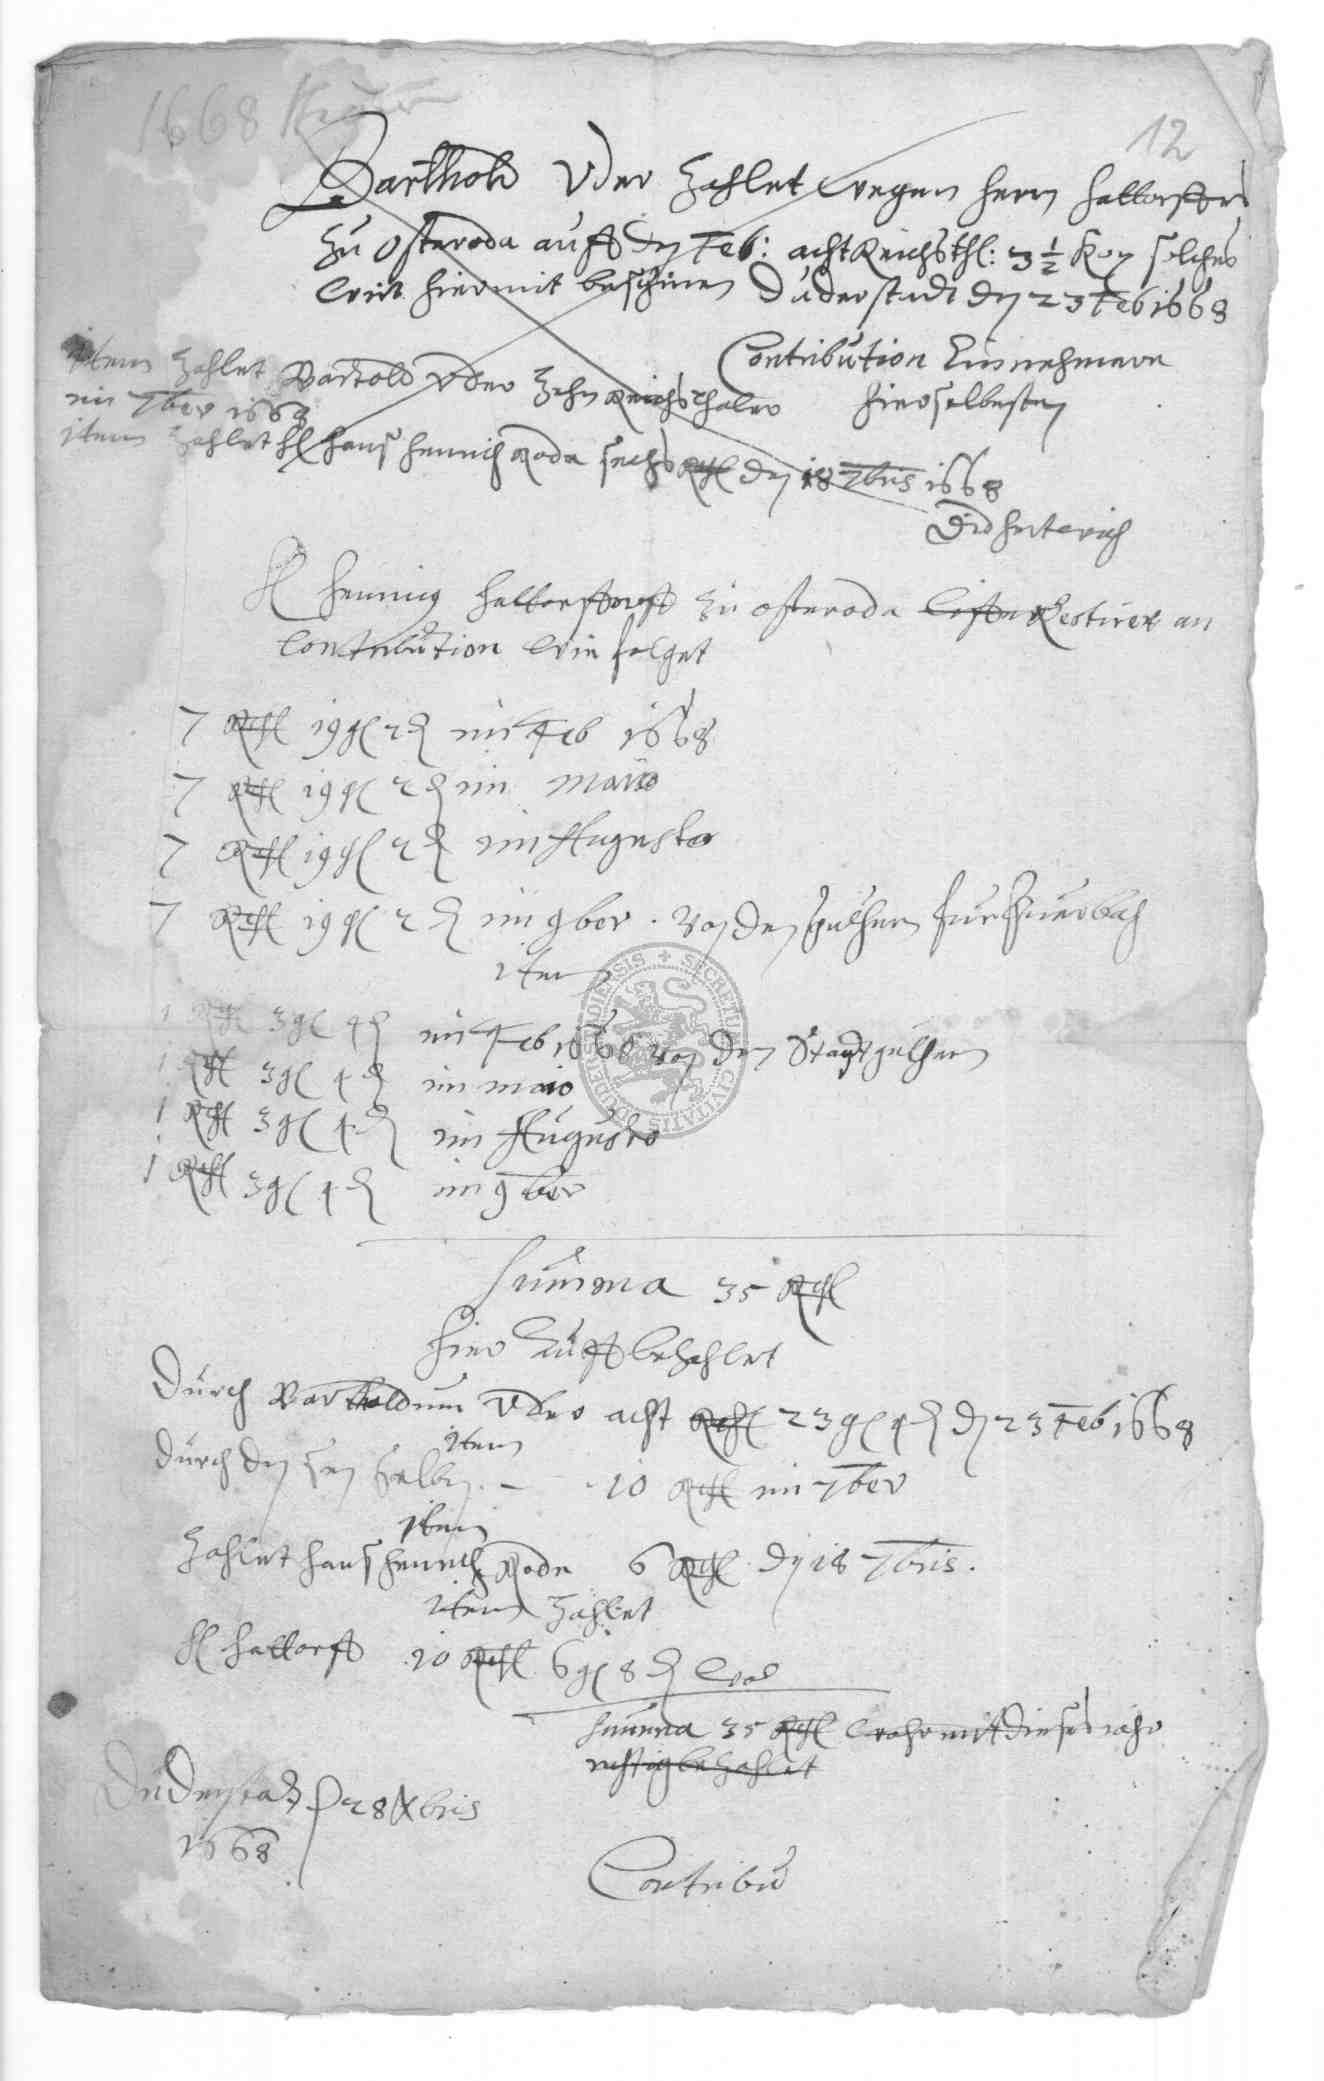 1668
12
Barthold Uder Zahlet wegen Herrn Hattorffs
zu Osteroda auffs dz Feb: acht Reichsthl: 3 1/2 Kop solches
wirt hiermit bescheinen Duderstadt dn 23 Feb 1668
Contribution Einnehmere
hierselbesten
item Zahlet Bartold Uder Zehn Reichsthaler
im 7ber 1668
item Zahlet H Hans Henrich Rode sechs Rthl dn 18 7bris 1668
H Henning Hattorff zu Osteroda Restiret an
Contribution wie folget
7 Rthl 19 gl 2 ₰ im Feb 1668
7 Rthl 19 gl 2 ₰ im Maio
7 Rthl 19 gl 2 ₰ im Augusto
7 Rthl 19 gl 2 ₰ im 9ber. von den
item
1 Rthl 3 gl 4 ₰ im Feb 1668 von den
1 Rthl 3 gl 4 ₰ im maio
1 Rthl 3 gl 4 ₰ im Augusto
1 Rthl 3 gl 4 ₰ im 9ber
Summa 35 Rthl
hier auff bezahlet
Durch Bartholdum Uder acht Rthl 23 gl 4 ₰ dn 23 Feb 1668
item
durch den selben - 10 Rthl im 7ber
item
Zahlet Hans Henrich Rode 6 Rthl dn 18 7bris.
item Zahlet
H Hattorff 10 Rthl 6 gl 8 ₰
Summa 35 Rthl mit dieses iahr
richtig bezahlet
Duderstadt 28 Xbris
1668
Contribu
SECRETUM CIVITATIS DUDERSTADIENSIS